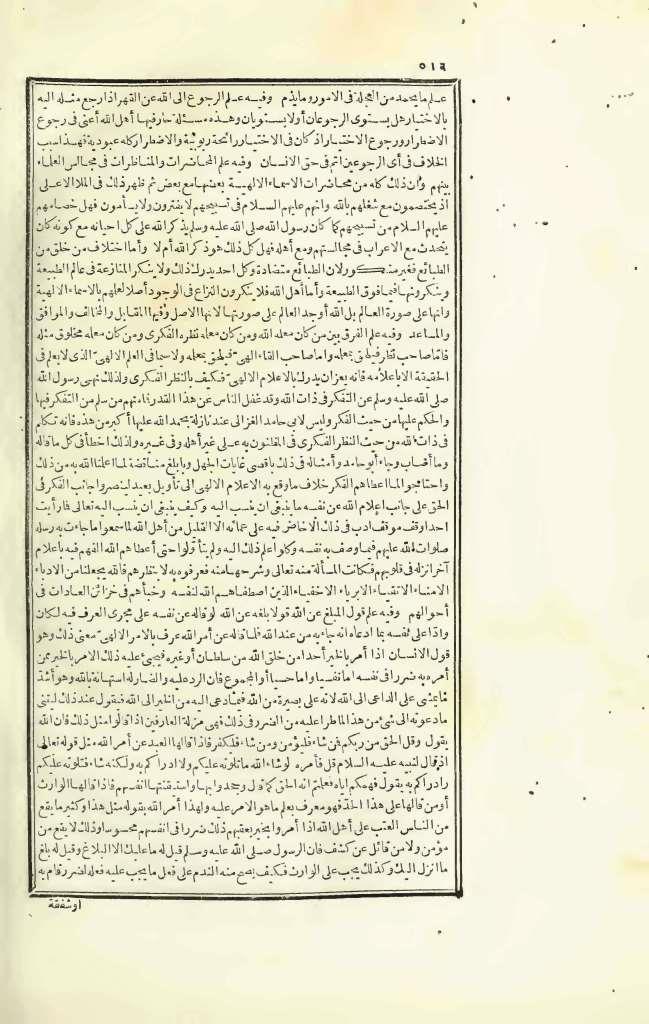 ٥١٦
علم ما يحمد من العجلة فى الامور وما يذم وفيه علم الرجوع الى الله عن القهر اذا رجع مثله اليه
بالاختيار هل يستوى الرجوعان أولا يستويان وهذه مسئلة حارفيها أهل الله أعنى فى رجوع
الاضطرار ورجوع الاختيار اذ كان فى الاختيار رائحة ربوبية والاضطرار كله عبودية فهذا سبب
الخلاف فى أى الرجوعين اتم فى حق الانسان وفيه علم المحاضرات والمناظرات فى مجالس العلماء
بينهم وان ذلك كله من محاضرات الاسماء الالهية بعضها مع بعض ثم ظهر ذلك فى الملا الاعلى
اذ يختصمون مع شغلهم بالله وانهم عليهم السلام فى تسبيحهم لا يفترون ولا يسأمون فهل خصامهم
عليهم السلام من تسبيحهم كما كان رسول الله صلى الله عليه وسلم يذكر الله على كل احيانه مع كونه كان
يتحدث مع الاعراب فى مجالستهم ومع أهله فهل كل ذلك هو ذكر الله أم لا وأما اختلاف من خلق من
الطبائع فغير منكور لان الطبائع متضادة وكل احد يدرك ذلك ولا ينكر المنازعة فى عالم الطبيعة
وينكرونها فيما فوق الطبيعة وأما أهل الله فلا ينكرون النزاع فى الوجود أصلا لعلهم بالاسماء الالهية
وانها على صورة العالم بل أوجد العالم على صورتها لانها الاصل وفيها المقابل والمخالف والموافق
والمساعد وفيه علم الفرق بين من كان معلمه الله ومن كان معلمه نظره الفكرى ومن كان معلمه مخلوق مثله
فاما صاحب نظر فيلحق بمعلمه واما صاحب القاء الهى فيلحق بمعلمه ولا سيما فى العلم الالهى الذى لا يعلم فى
الحقيقة الا باعلامه فانه يعز ان يدرك بالاعلام الالهى فكيف بالنظر الفكرى ولذلك نهى رسول الله
صلى الله عليه وسلم عن التفكر فى ذات الله وقد غفل الناس عن هذا القدر فما منهم من سلم من التفكر فيها
والحكم عليها من حيث الفكر وليس لابى حامد الغزالى عند نازلة بحمد الله عليها أكبر من هذه فانه تكلم
فى ذات الله من حيث النظر الفكرى فى المظنون به على غير أهله وفى غيره ولذلك اخطأ فى كل ما قاله
وما أصاب وجاء أبو حامد وأمثاله فى ذلك باقصى غايات الجهل وبابلغ مناقضة لما اعلمنا الله به من ذلك
واحتاجوا لما اعطاهم الفكر خلاف ما وقع به الاعلام الالهى الى تأويل بعيد لينصروا جانب الفكر فى
الحق على جانب اعلام الله عن نفسه ما ينبغى ان ينسب اليه وكيف ينبغى ان ينسب اليه تعالى فما رأيت
احدا وقف موقف ادب فى ذلك الا خاض فيه على عماية الا القليل من أهل الله لما سمعوا ما جاءت به رسله
صلوات الله عليهم فيما وصف به نفسه وكلوا علم ذلك اليه ولم يتأولوا حتى أعطاهم الله الفهم فيه باعلام
آخر انزله فى قلوبهم فكانت المسألة منه تعالى وشرحها منه فعرفوه به لا بنظرهم فالله يجعلنا من الادباء
الامناء الاتقياء الابرياء الاخفياء الذين اصطفاهم الله لنفسه وخبأهم فى خزائن العادات فى
أحوالهم وفيه علم قول المبلغ عن الله قولا بلغه عن الله لو قاله عن نفسه على مجرى العرف فيه لكان
رادا على نفسه بما ادعاه انه جاء به من عند الله فلما قاله عن أمر الله عرف بالامر الالهى معنى ذلك وهو
قول الانسان اذا أمر بالخير أحدا من خلق الله من سلطان أو غيره فيجنى عليه ذلك الامر بالخير ممن
أمره به ضررا فى نفسه اما نفسيا واما حسيا أو المجموع فان الرد عليه والضار له استهانة بالله وهو أشد
ما يمشى على الداعى الى الله لانه على بصيرة من الله فيما دعى اليه من الخير الى الله فيقول عند ذلك ليتنى
ما دعوته الى شئ من هذا لما طرأ عليه من الضرر فى ذلك فهى مزلة العارفين اذا قالوا مثل ذلك فان الله
يقول وقل الحق من ربكم فمن شاء فليؤمن ومن شاء فليكفر فاذا قالها العبد عن أمر الله مثل قوله تعالى
اذ قال لنبيه عليه السلام قل فأمره لو شاء الله ما تلوته عليكم ولا ادراكم به ولكنه شاء فتلوته عليكم
وادراكم به يقول فهمكم اياه فعلمتم انه الحق كما قال وجحدوا بها واستيقنتها انفسهم فاذا قالها الوارث
أو من قالها على هذا الحد فهو معرف يعلم ما هو الامر عليه ولهذا أمر الله بقوله مثل هذا وكثير ما يقع
من الناس العتب على أهل الله اذا أمروا بخير يعقبهم ذلك ضررا فى انفسهم محسوسا وذلك لا يقع من
مؤمن ولا من قائل عن كشف فان الرسول صلى الله عليه وسلم قيل له ما عليك الا البلاغ وقيل له بلغ
ما انزل اليك وكذلك يجب على الوارث فكيف يصح منه الندم على فعل ما يجب عليه فعله لضرر قام به
اوشفقة